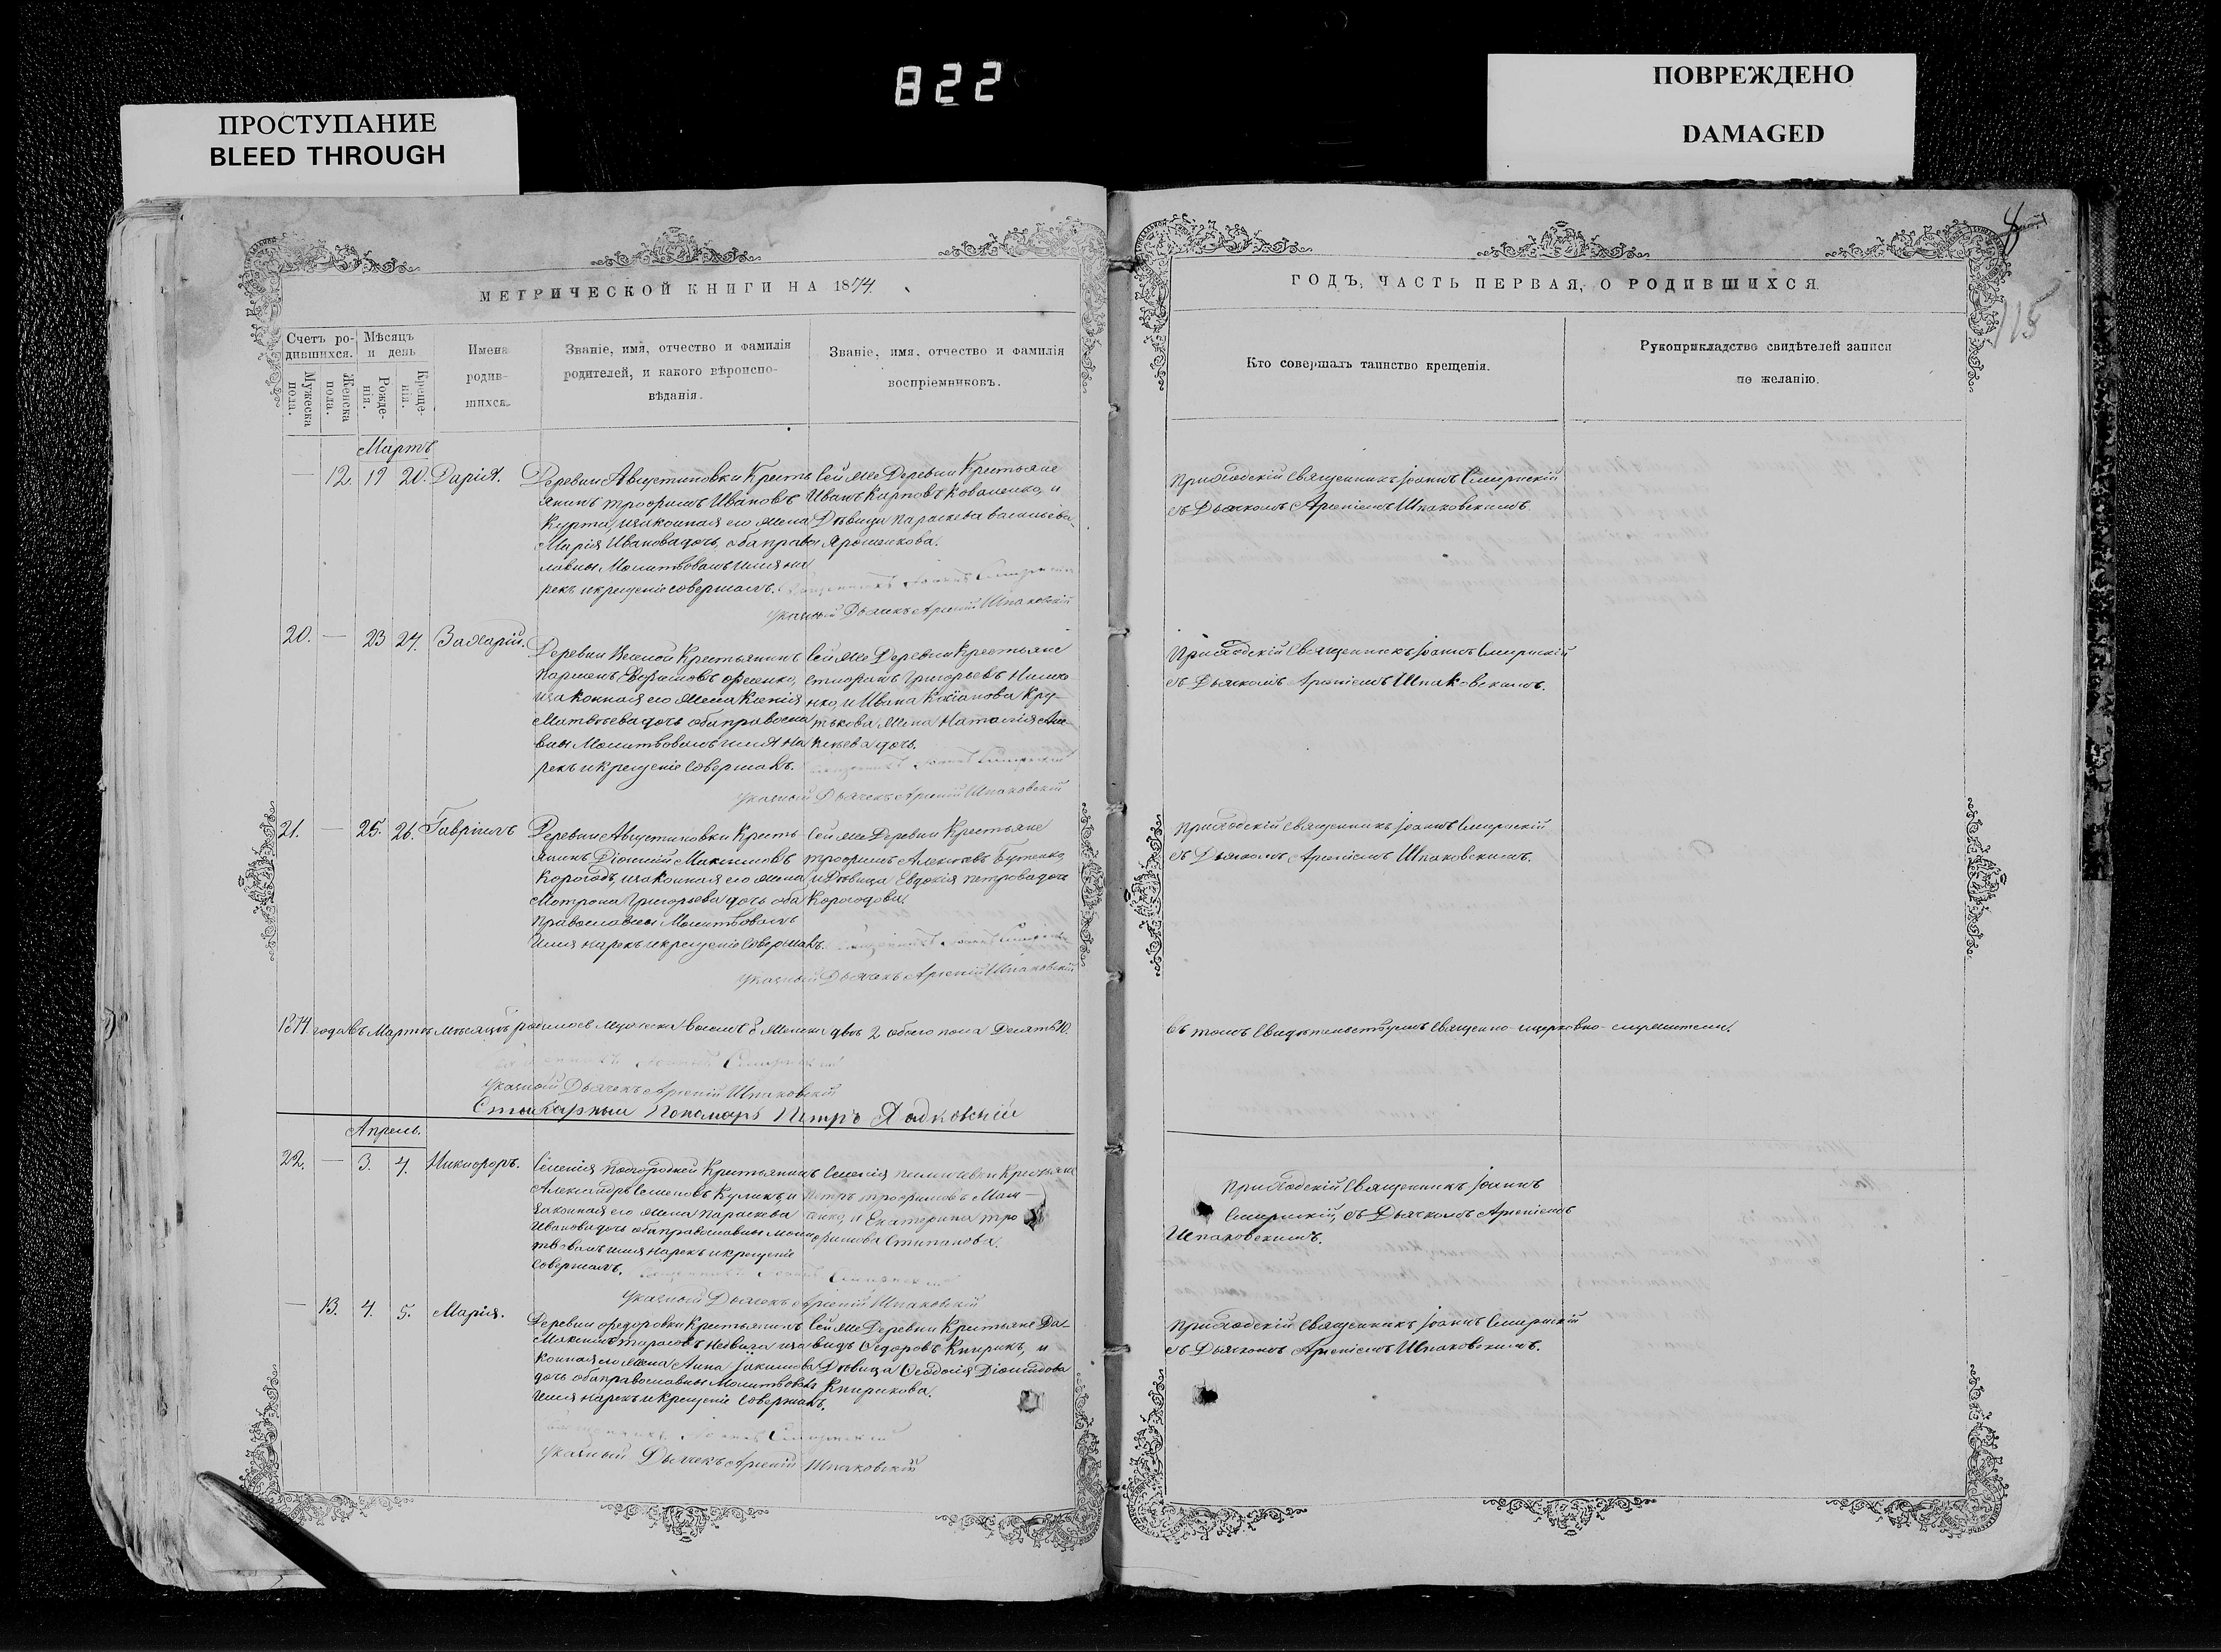 822
ПРОСТУПАНИЕ
BLEED THROUGH
ПОВРЕЖДЕНО
DAMAGED
8
115
МЕТРИЧЕСКОЙ КНИГИ НА 1874
ГОДЪ, ЧАСТЬ ПЕРВАЯ, О РОДИВШИХСЯ
Счетъ ро-
дившихся.
Мужеска
пола.
Женска
пола.
Мѣсяцъ
и день
Рожде-
нія.
Креще-
нія.
Имена
родив-
шихся.
Званіе, имя, отчество и фамилія
родителей, и какого вѣроиспо-
вѣданія.
Званіе, имя, отчество и фамилія
воспріемниковъ.
Кто совершалъ таинство крещенія.
Рукоприкладство свидѣтелей записи
по желанію.
Мартъ
— 12. 19 20. Дарія.
Деревни Августиновки Кресть
янинъ Трофимъ Ивановъ
Курта, изаконная его жена
Марія Иванова дочь, оба право
славны Молитвовалъ имя на
рекъ и крещеніе совершалъ.
Сей же Деревни Крестьяне
Иванъ Карповъ Коваленко, и
Дѣвица Параскева Васильева
Ярошенкова.
Указный Дьячекъ Арсеній Шпаковскій
Приходскій Священникъ Іоаннъ Смирнскій
съ Дьячкомъ Арсеніемъ Шпаковскимъ.
20. — 23 24. Захарій.
Деревни Крестьянинъ
изаконная его жена Ксенія
Матвѣева дочь оба правосла
вны Молитвовалъ имя на
рекъ и крещеніе совершалъ.
Сей же Деревни Крестьяне
Григорьевъ
жена Наталія
дочь.
Указный Дьячекъ Арсеній Шпаковскій
Приходскій Священникъ Іоаннъ Смирнскій
съ Дьячкомъ Арсеніемъ Шпаковскимъ.
21. — 25. 26. Гавріилъ
Деревни Августиновки Кресть
янинъ Діонисій Максимовъ
Корогодъ, изаконная его жена
Мотрона Григорьева дочь оба
Православны Молитвовалъ
имя нарекъ и крещеніе совершалъ.
Сей же Деревни Крестьяне
Трофимъ Алексѣевъ Бутенко,
и Дѣвица Евдокія Петрова дочь
Корогодова.
Указный Дьячекъ Арсеній Шпаковскій
Приходскій Священникъ Іоаннъ Смирнскій
съ Дьячкомъ Арсеніемъ Шпаковскимъ.
1874 года въ Мартѣ мѣсяцѣ родилось мужска восемь 8 женска двѣ 2 обоего пола Десять 10.
въ томъ Свидѣтельствуемъ Священно-и церковно-служители.
Священникъ Іоаннъ Смирнскій
Указный Дьячекъ Арсеній Шпаковскій
Стихарный Пономарь Петръ
Апрель.
22. — 3. 4. Никифоръ.
Селенія Подгородней Крестьянинъ
Александръ Семеновъ Куликъ, и
законная его жена Параскева
Иванова дочь оба православны Моли
твовалъ имя нарекъ и крещеніе
совершалъ.
Селенія Крестьяне
Петръ Трофимовъ
и Екатерина Тро
фимова Степанова.
Указный Дьячекъ Арсеній Шпаковскій
Приходскій Священникъ Іоаннъ
Смирнскій, съ Дьячкомъ Арсеніемъ
Шпаковскимъ.
— 13. 4. 5. Марія.
Деревни Федоровки Крестьянинъ
Максимъ Тарасовъ иза
конная его жена Анна Іакимова
дочь оба православны Молитвовалъ
имя нарекъ и крещеніе совершалъ.
Сей же Деревни Крестьяне Да
видъ Ѳедоровъ Кнырикъ, и
Дѣвица Ѳеодосія Діомидова
Кнырикова.
Указный Дьячекъ Арсеній Шпаковскій
Приходскій Священникъ Іоаннъ Смирнскій
съ Дьячкомъ Арсеніемъ Шпаковскимъ.